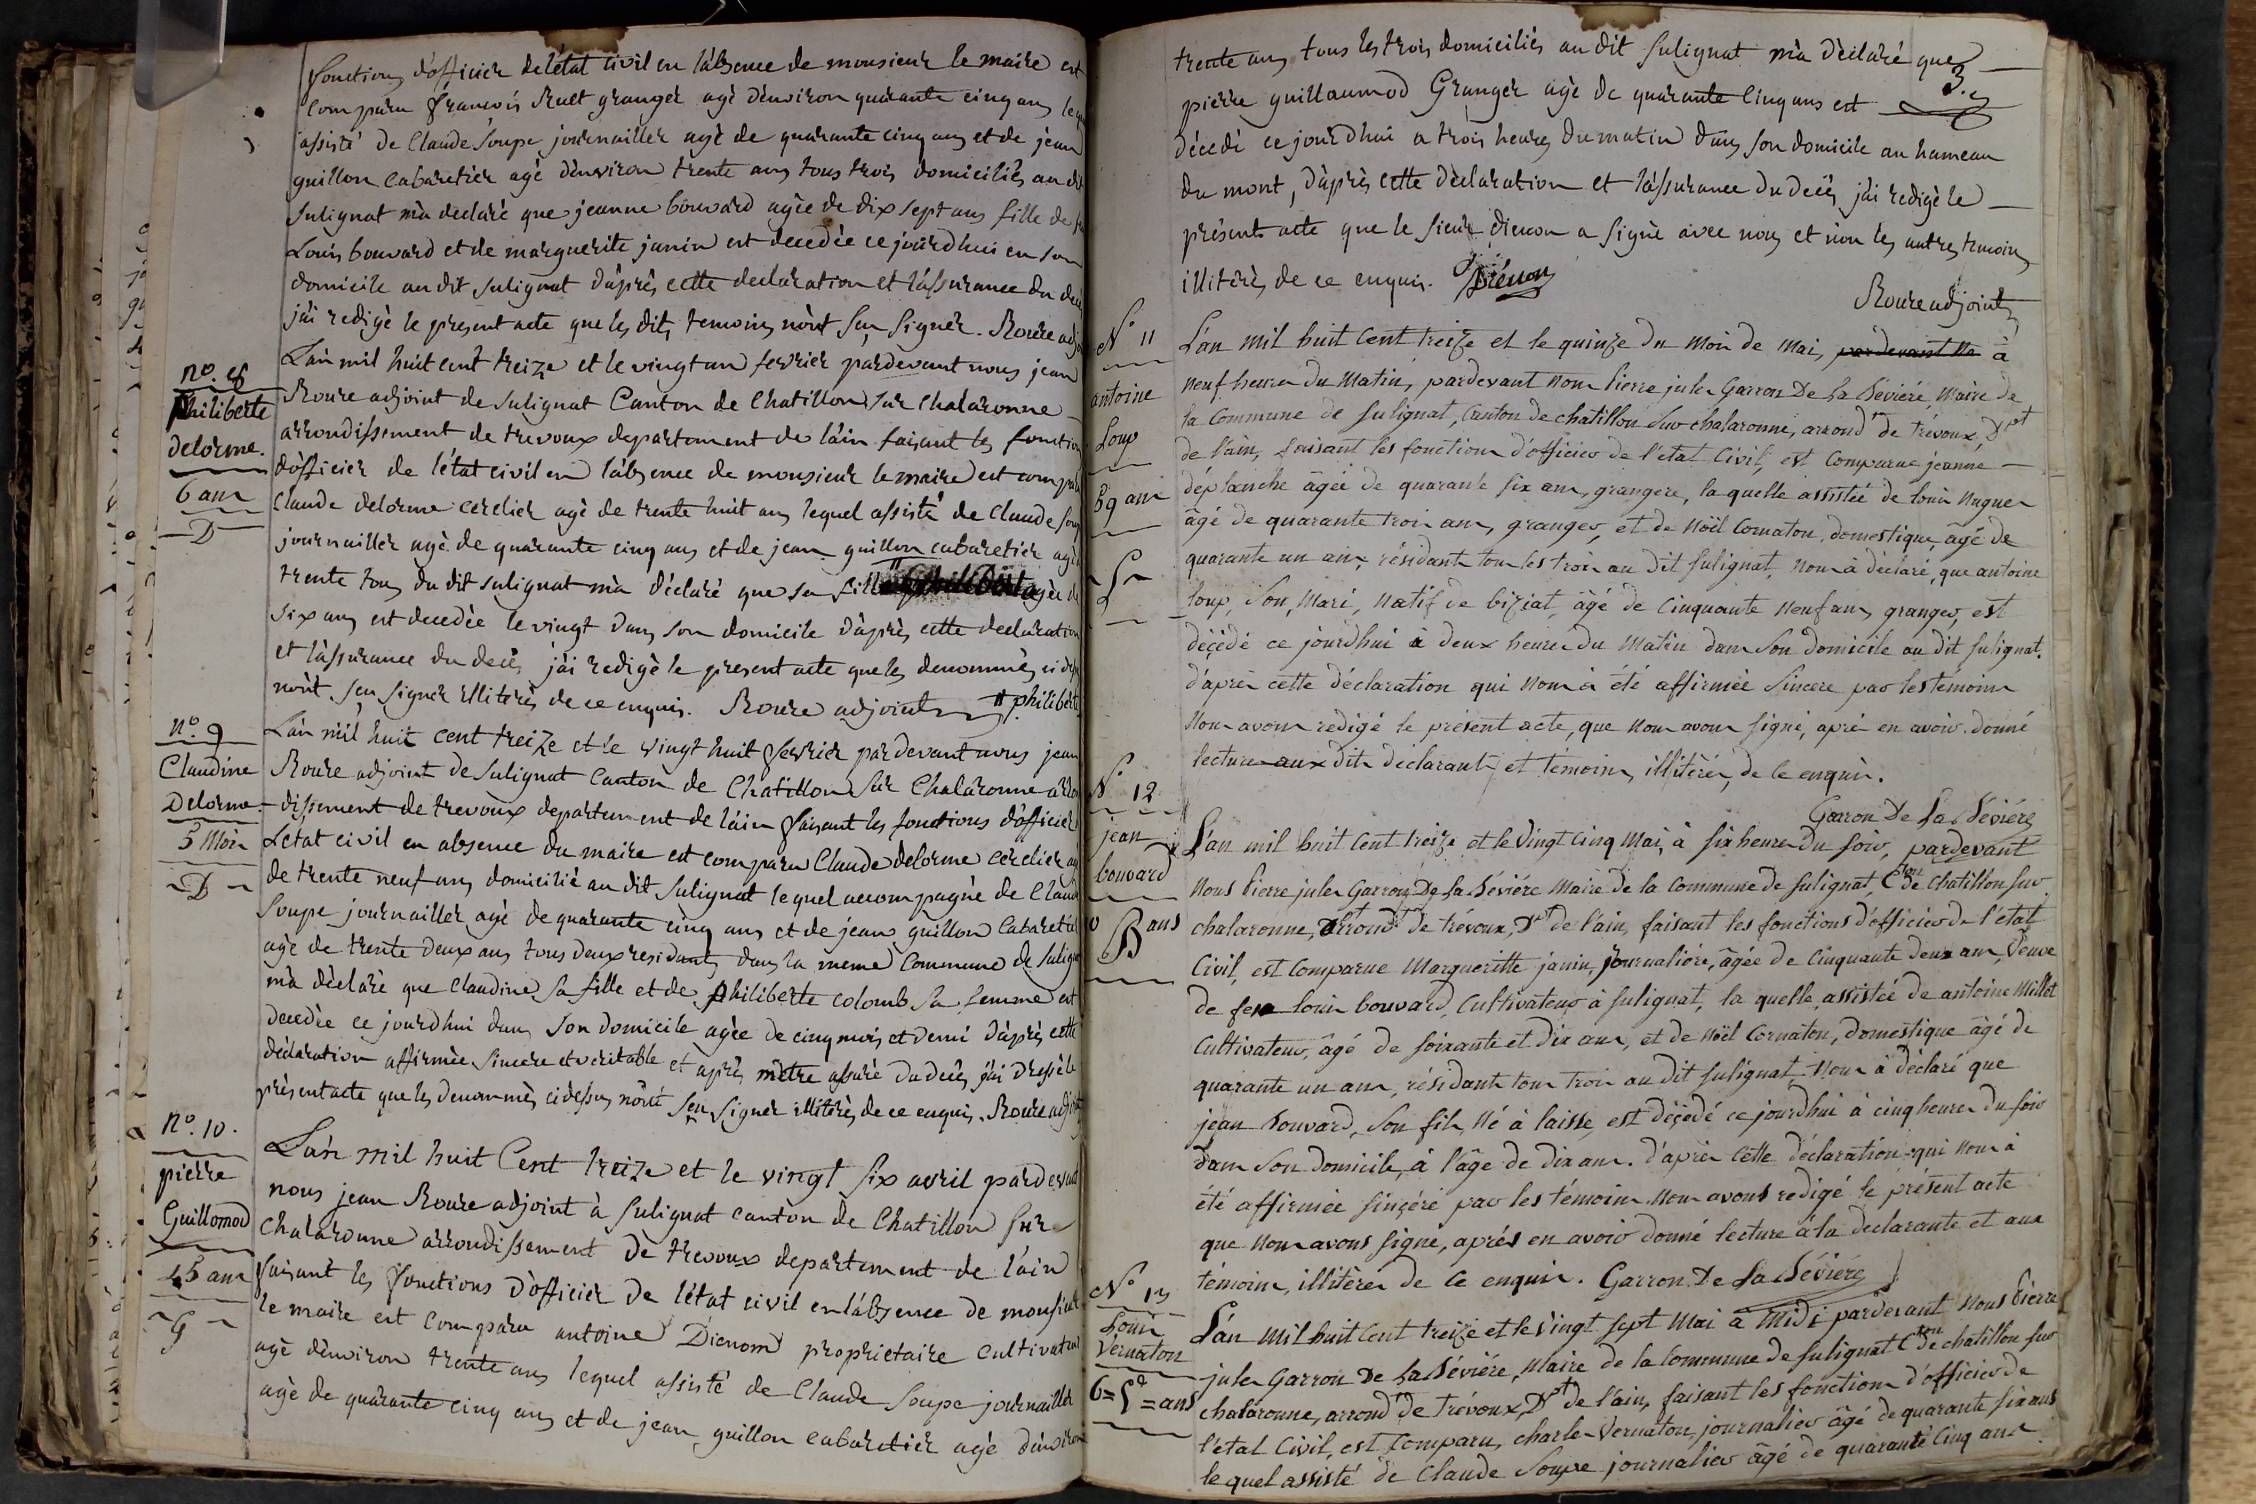 fonctions d'officier de létat civil en lábsence de monsieur le maire est
comparu francois Ruet granger agé dénviron quarante cinq ans
assisté de Claude Soupe journailler agé de quarante cinq ans et de jean
guillon cabaretier agé dénviron trente ans tous trois domiciliés au dit
Sulignat má declaré que jeanne bouvard agée de dix sept ans fille de
Louis bouvard et de marguerite janin est decedée ce jourdhui en son
domicile au dit Sulignat dáprés cette declaration et lássurance du
jái redigé le present acte que les dits temoins nònt Seu Signer. Roure
nº. 8
philiberte
Delorme.
6 ans
D
Lán mil huit cent treize et le vingt un fevrier pardevant nous jean
Roure adjoint de Sulignat Canton de Chatillon Sur Chalaronne
arrondissement de trevoux departement de láin faisant les
dófficier de létat civil en lábsence de monsieur le maire est
Claude delorme cerclier agé de trente huit ans lequel assisté de Claude
journailler agé de quarante cinq ans et de jean guillon cabaretier agé
trente tous du dit Sulignat má déclaré que sa fille agée de
Six ans est decedée le vingt dans son domicile dáprés cette declaration
et lássurance du decés jái redigé le present acte que les denommés
nònt Seu Signer illiterés de ce enquis. Roure adjoint # philiberte
nº. 9
Claudine
Delorme
5 Mois
D
Lán mil huit cent treize et le vingt huit fevrier pardevant nous jean
Roure adjoint de Sulignat Canton de Chatillon Sur Chalaronne
dissement de trevoux departement de láin faisant les fonctions dófficier
Létat civil en absence du maire est comparu Claude delorme cerclier
de trente neuf ans domicilié au dit Sulignat lequel accompagné de
Soupe journailler agé de quarante cinq ans et de jean guillon
agé de trente deux ans tous deux residants dans la meme Commune de
má déclaré que Claudine Sa fille et de philiberte colomb Sa femme est
decedée ce jourdhui dans Son domicile agée de cinq mois et demi dáprés cette
déclaration affirmée Sincere et veritable et aprés mètre assuré du decés jái dressé le
présent acte que les denommés cidessus nònt Seu Signer illiterés de ce enquis. Roure
nº. 10.
pierre
Guillomod
45 ans
G
Lán mil huit Cent treize et le vingt Six avril
nous jean Roure adjoint à Sulignat canton de Chatillon Sur
Chalaronne arrondissement de trevoux departement de láin
faisant les fonctions dófficier de létat civil en lábsence de
le maire est comparu antoine Dienon proprietaire
agé dénviron trente ans lequel assisté de Claude Soupe journailler
agé de quarante cinq ans et de jean guillon cabaretier agé
trente ans tous les trois domiciliés au dit Sulignat má déclaré que
pierre guillaumod Granger agé de quarante cinq ans est
décedé ce jourdhui a trois heures du matin dans son domicile au hameau
du mont, dáprés cette déclaration et lássurance du decés jái redigé le
présent acte que le sieur dienon a Signé avec nous et non les autres temoins
illiterés de ce enquis. Diénon
Roure adjoint
3.
Nº 11
antoine
Loup
59 ans
L
L'an mil huit cent treize et le quinze du mois de mai, pardevant no à
neuf heures du Matin, pardevant nous Pierre jules Garron De La Béviére, Maire de
la Commune de Sulignat, Canton de chatillon Sur chalaronne, arrondt de trévoux, Dept
de l'ain, faisant les fonctions d'officier de l'etat Civil, est Comparue jeanne
déplanche âgée de quarante six ans, grangere, la quelle assistée de louis
âgé de quarante trois ans, granger, et de Noël Cornaton, domestique, âgé de
quarante un ans, résidants tous les trois au dit Sulignat, nous à déclaré, que antoine
loup, Son Mari, Natif de biziat, âgé de Cinquante neuf ans, granger, est
décédé ce jourdhui à deux heures du Matin dans Son domicile au dit Sulignat.
d'après cette déclaration qui nous à été affirmée Sincere par les témoins
Nous avons redigé le présent acte, que nous avons signé, après en avoir donné
lecture aux dits déclarants et témoins, illitérés, de ce enquis.
Garron De La Béviére
Nº 12
jean
bouvard
10 ans
B
L'an mil huit Cent treize et le Vingt Cinq Mai, à six heures du soir, pardevant
Nous Pierre jules Garron De La Béviére Maire de la Commune de Sulignat, Cton de Chatillon Sur
chalaronne, arrondt de trévoux, Dpt de l'ain, faisant les fonctions d'officier de l'etat
Civil, est Comparue Margueritte janin, journaliére, âgée de Cinquante deux ans, Veuve
de feu louis bouvard, Cultivateur à Sulignat, la quelle, assistée de antoine Millet
Cultivateur, âgé de soixante et dix ans, et de Noël Cornaton, domestique âgé de
quarante un ans, résidants tous trois au dit Sulignat, Nous à déclaré que
jean bouvard, son fils, Né à laisse, est décédé ce jourdhui à cinq heures du soir
dans Son domicile, à l'âge de dix ans. d'après cette déclaration qui nous à
été affirmée sincére par les témoins Nous avons redigé le présent acte
que nous avons signé, aprés en avoir donné lecture à la declarante et aux
témoins, illitérés de ce enquis. Garron De La Béviére
Nº 13
Louis
Vernaton
6 = ans
L'an mil huit Cent treize et le Vingt sept Mai à Midi pardevant Nous Pierre
jules Garron De La Béviére, Maire de la Commune de Sulignat Cton de chatillon Sur
chalaronne, arrondt de trévoux, Dpt de l'ain, faisant les fonctions d'officier de
l'etat Civil, est Comparu, charles Vernaton, journalier âgé de quarante six ans
le quel assisté de Claude Soupe journalier âgé de quarante Cinq ans